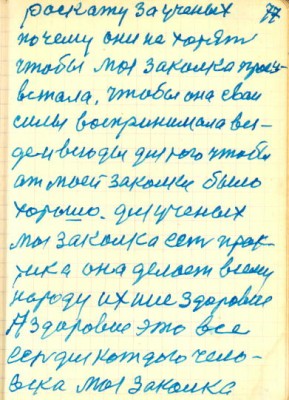 роскажу за ученых 77
почему они не хотят
чтобы моя закалка прос-
ветала, чтобы она свои
силы воспринимала вез-
де и всюду для того чтобы
от моей закалки было
хорошо. для ученых
моя закалка есть прак-
тика она делает всему
народу ихние здоровие
А здоровие это все
серди каждого чело-
века моя закалка